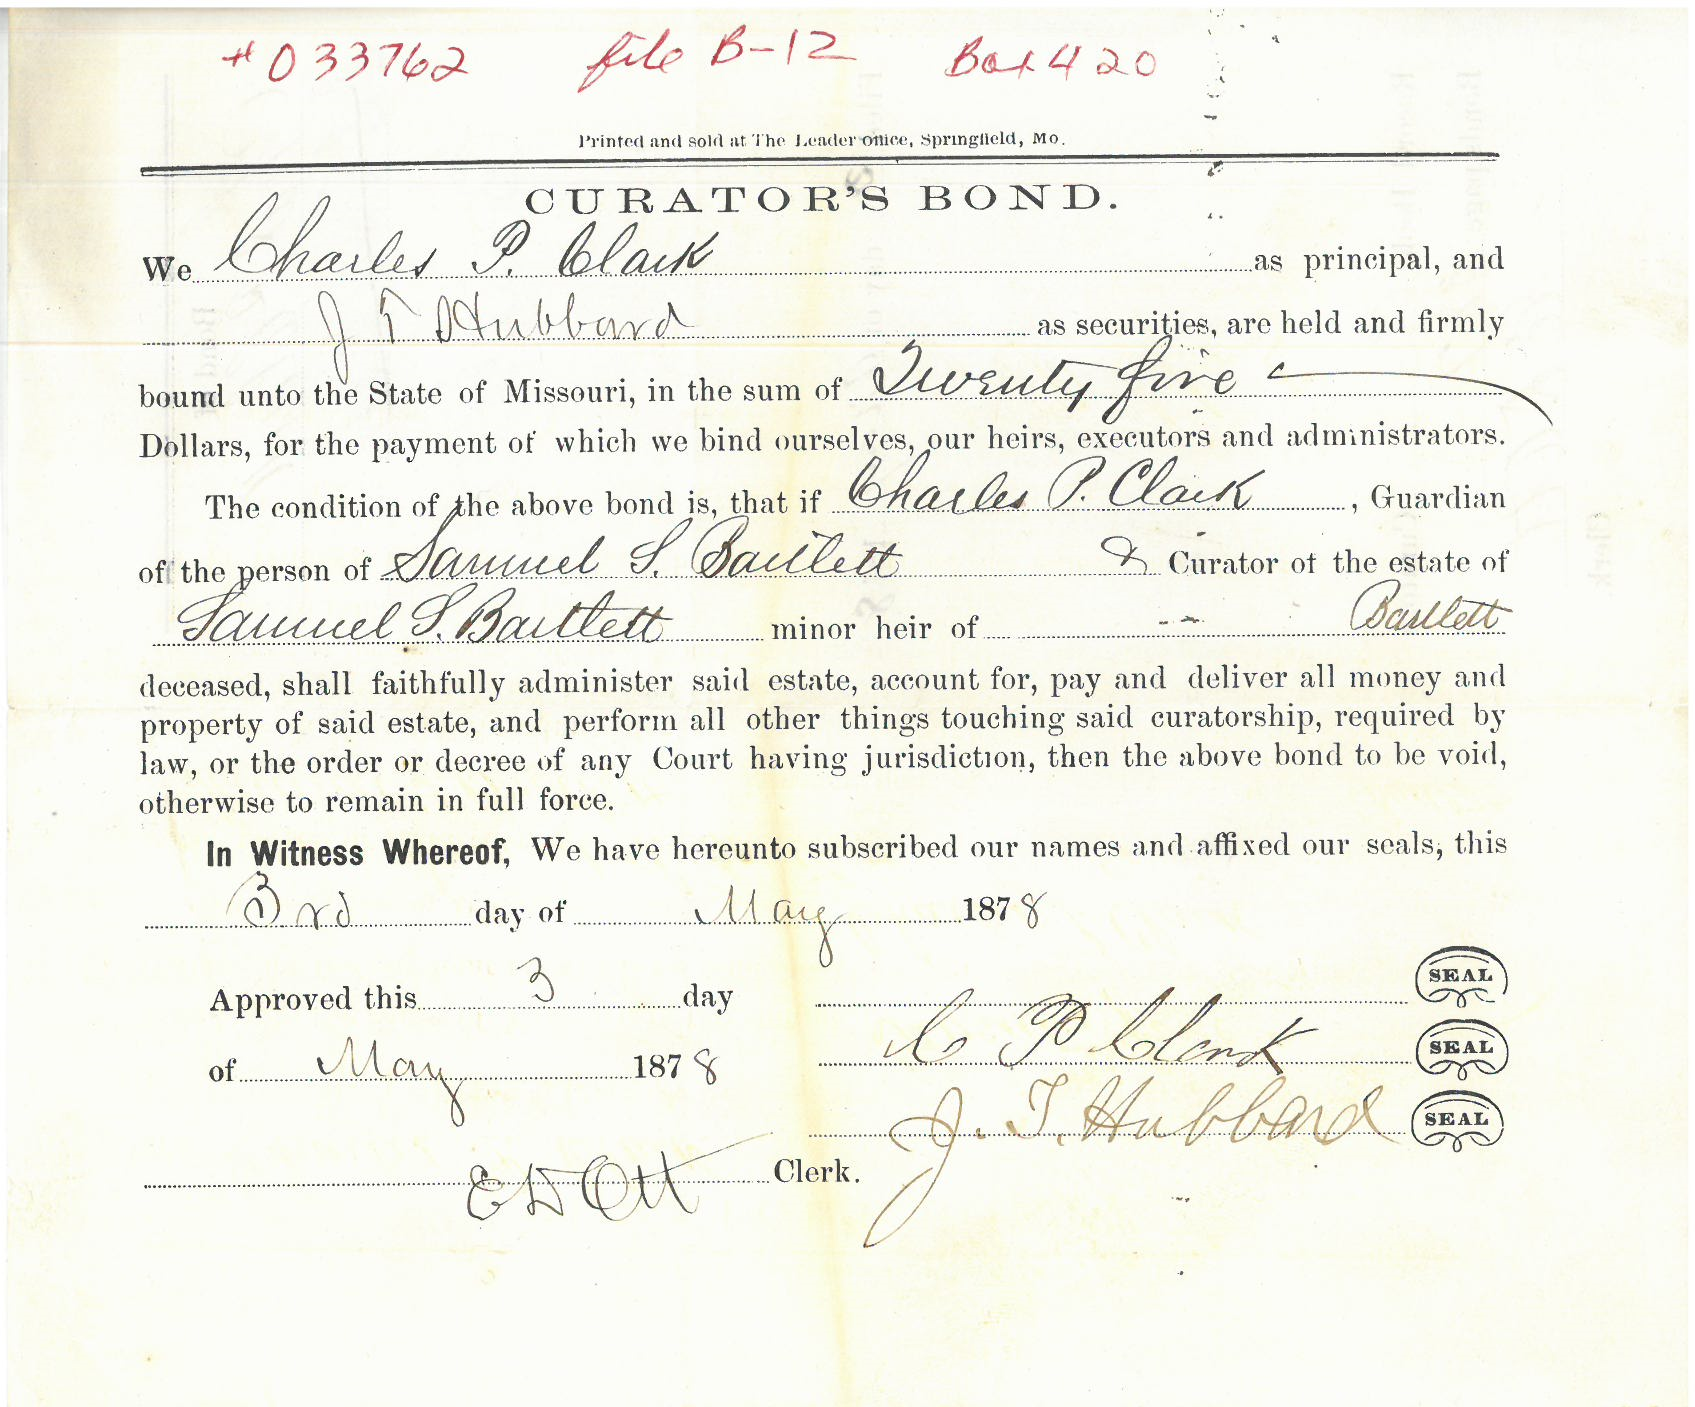 # 033762 file B-12 Box 420
Printed and sold at The Leader office, Springfield, Mo.
CURATOR'S BOND.
We Charles P. Clark as principal, and
J T Hubbard as securities, are held and firmly
bound unto the State of Missouri, in the sum of Twenty five
Dollars, for the payment of which we bind ourselves, our heirs, executors and administrators.
The condition of the above bond is, that if Charles P. Clark, Guardian
of the person of Samuel S. Bartlett & Curator of the estate of
Samuel S. Bartlett minor heir of -- Bartlett
deceased, shall faithfully administer said estate, account for, pay and deliver all money and
property of said estate, and perform all other things touching said curatorship, required by
law, or the order or decree of any Court having jurisdiction, then the above bond to be void,
otherwise to remain in full force.
In Witness Whereof, We have hereunto subscribed our names and affixed our seals, this
3rd day of May 1878
Approved this 3 day SEAL
of May 1878 C P Clark SEAL
J. T. Hubbard SEAL
E D Ott Clerk.